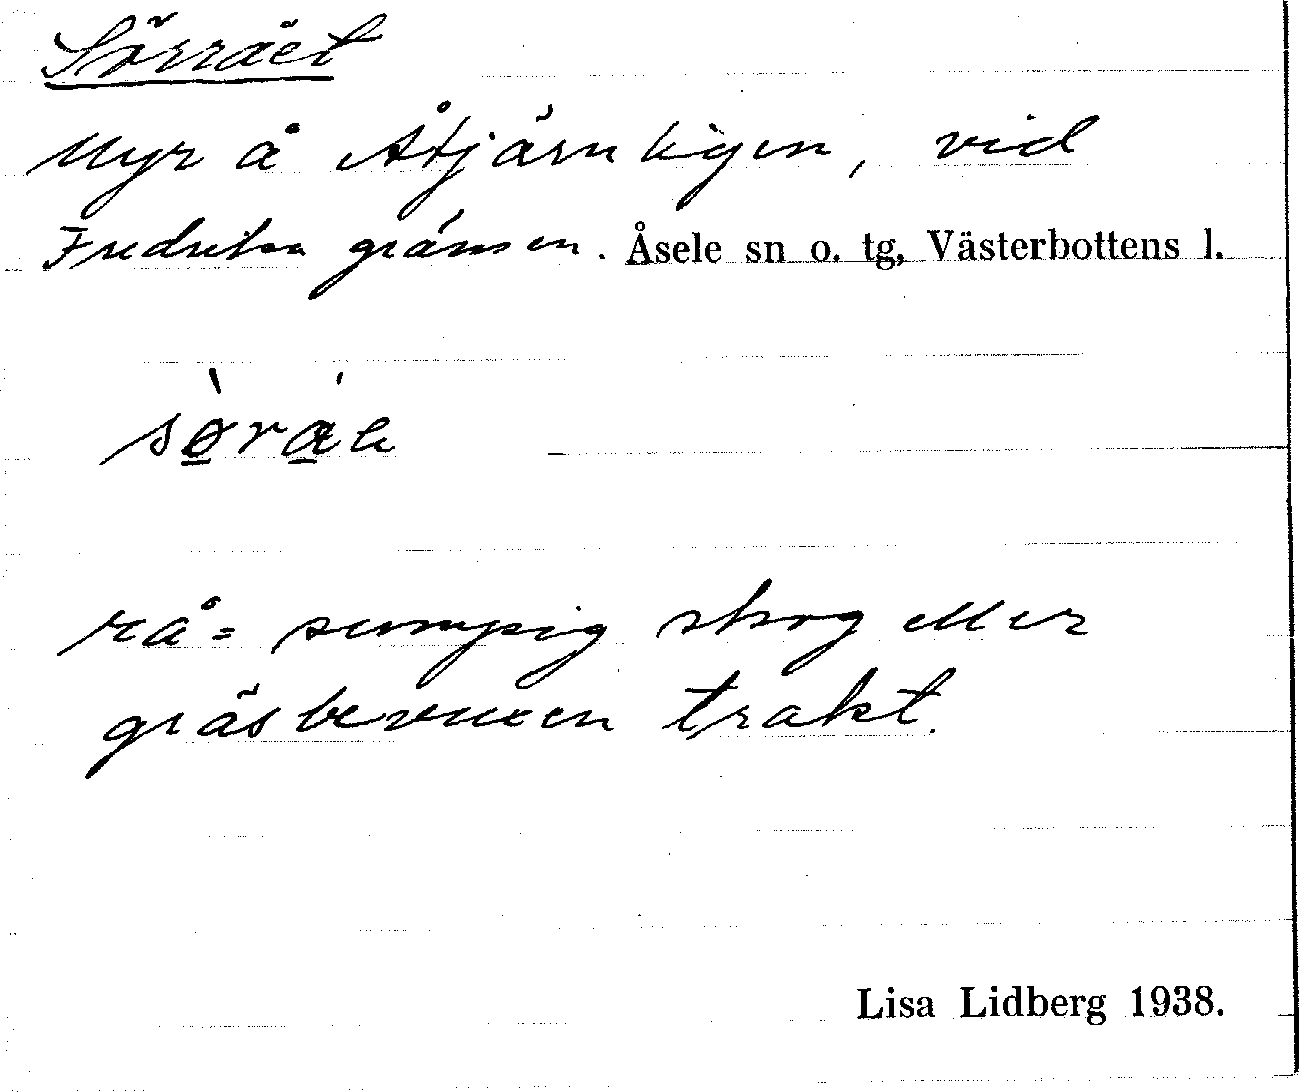 Sörråét
Myr å Åtjärnliden, vid
Fredrika gränsen. Åsele sn o. tg, Västerbottens l.
rå = sumpig skog eller
gräsbevuxen trakt.
Lisa Lidberg 1938.